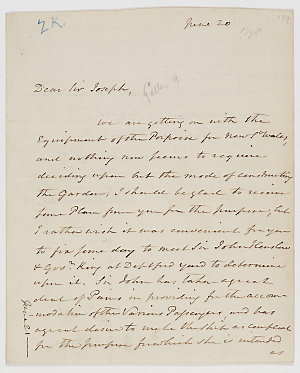 2K.
June 20
1798
Dear Sir Joseph,
We are getting on with the
Equipment of the Porpoise for New S. Wales,
and nothing now seems to require
deciding upon but the mode of constructing
the Garden; I should be glad to receive
some Plan from you for the purpose, but
I rather wish it was convenient for you
to fix some day to meet Sir John Henslow
& Govr. King at Deptford yard to determine
upon it. Sir John has taken a great
deal of Pains in providing for the accom-
modation of the Various Passengers, and has
a great desire to make the Ship as compleat
for the purpose for which she is intended
as
June 20